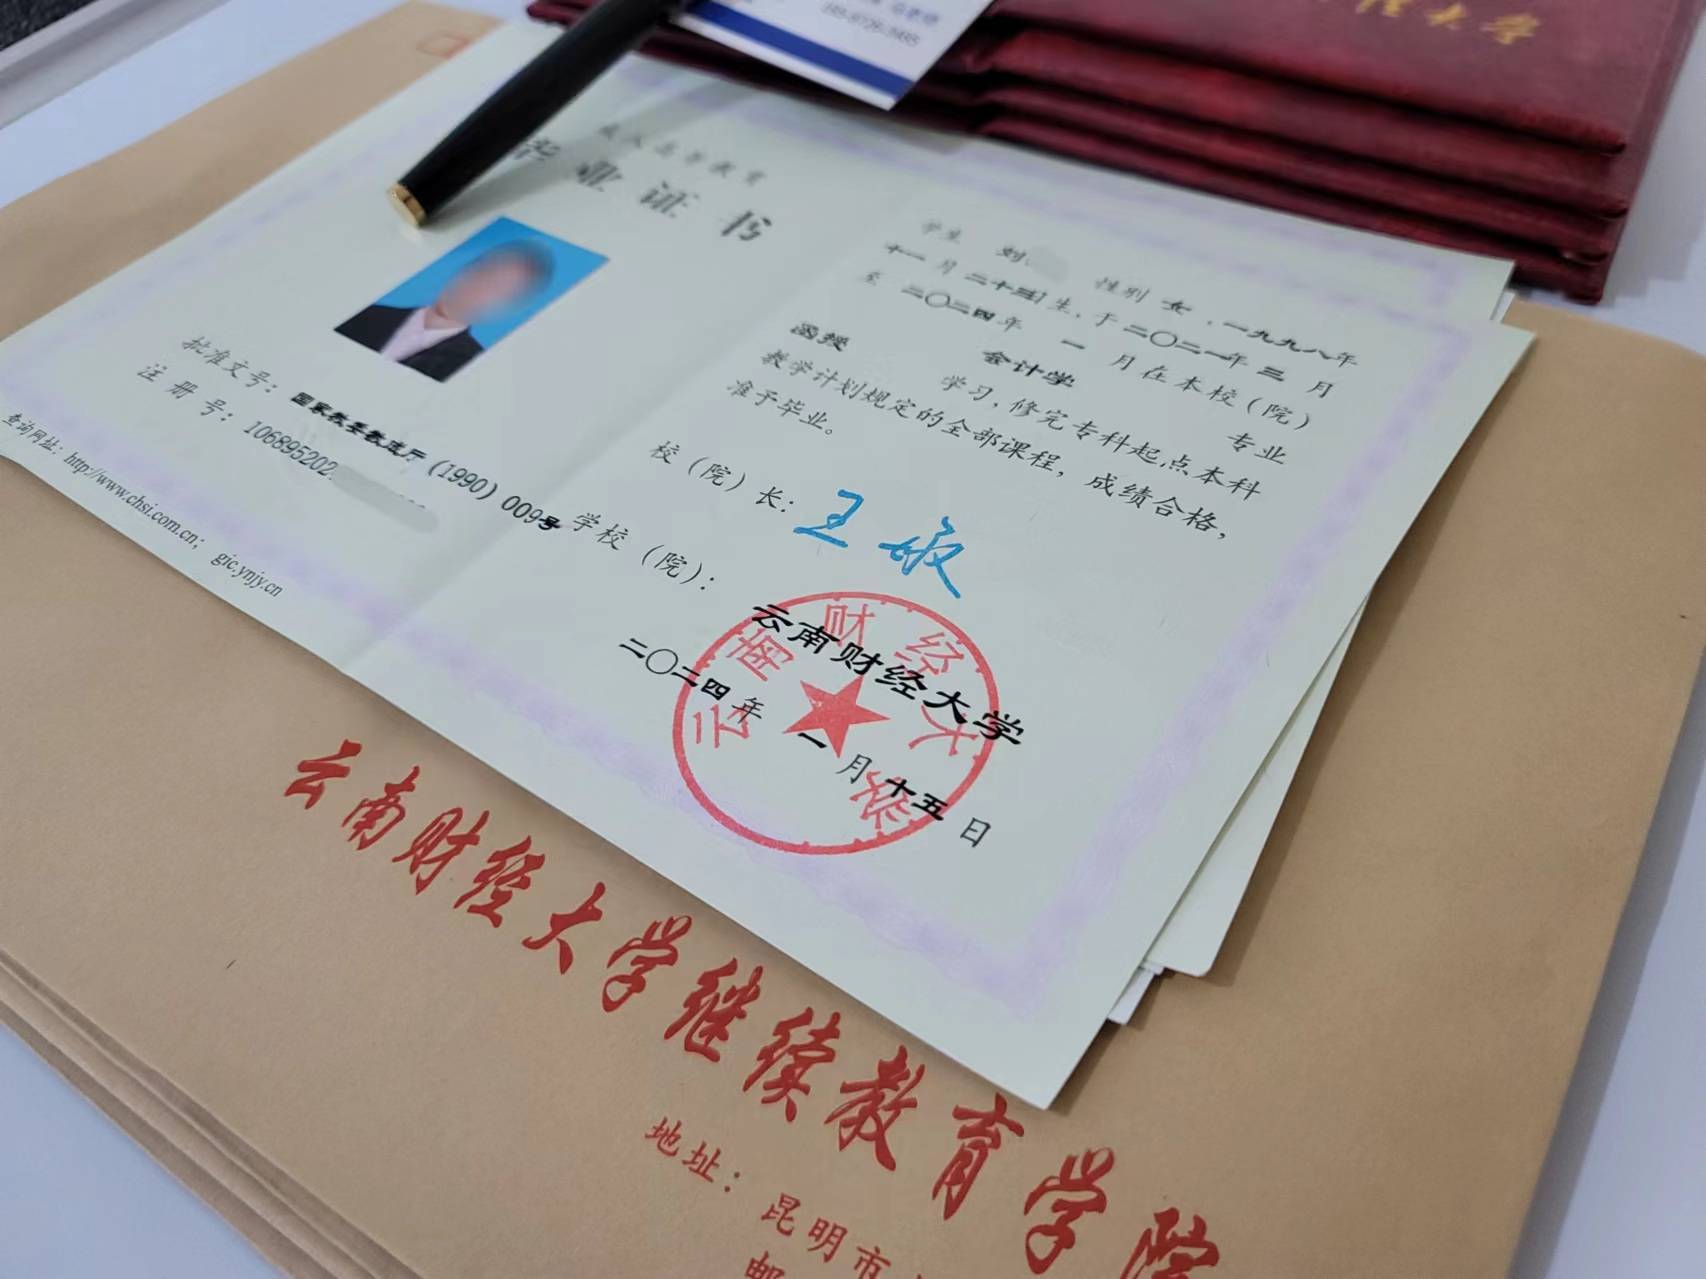 成人高等教育
毕业证书
批准文号：国家教委教建厅（1990）009号
注册号：106895202
查询网址：http://www.chsi.com.cn； gic.ynjy.cn
学生 刘 性别 女 ，一九九八年
十一月二十三日生，于二〇二一年三月
至 二〇二四年 一 月在本校（院）
函授 会计学 专业
学习，修完专科起点本科
教学计划规定的全部课程，成绩合格，
准予毕业。
校（院）长：王敏
学校（院）：云南财经大学
二〇二四年 一 月十五日
云南财经大学
云南财经大学继续教育学院
地址：昆明市
邮